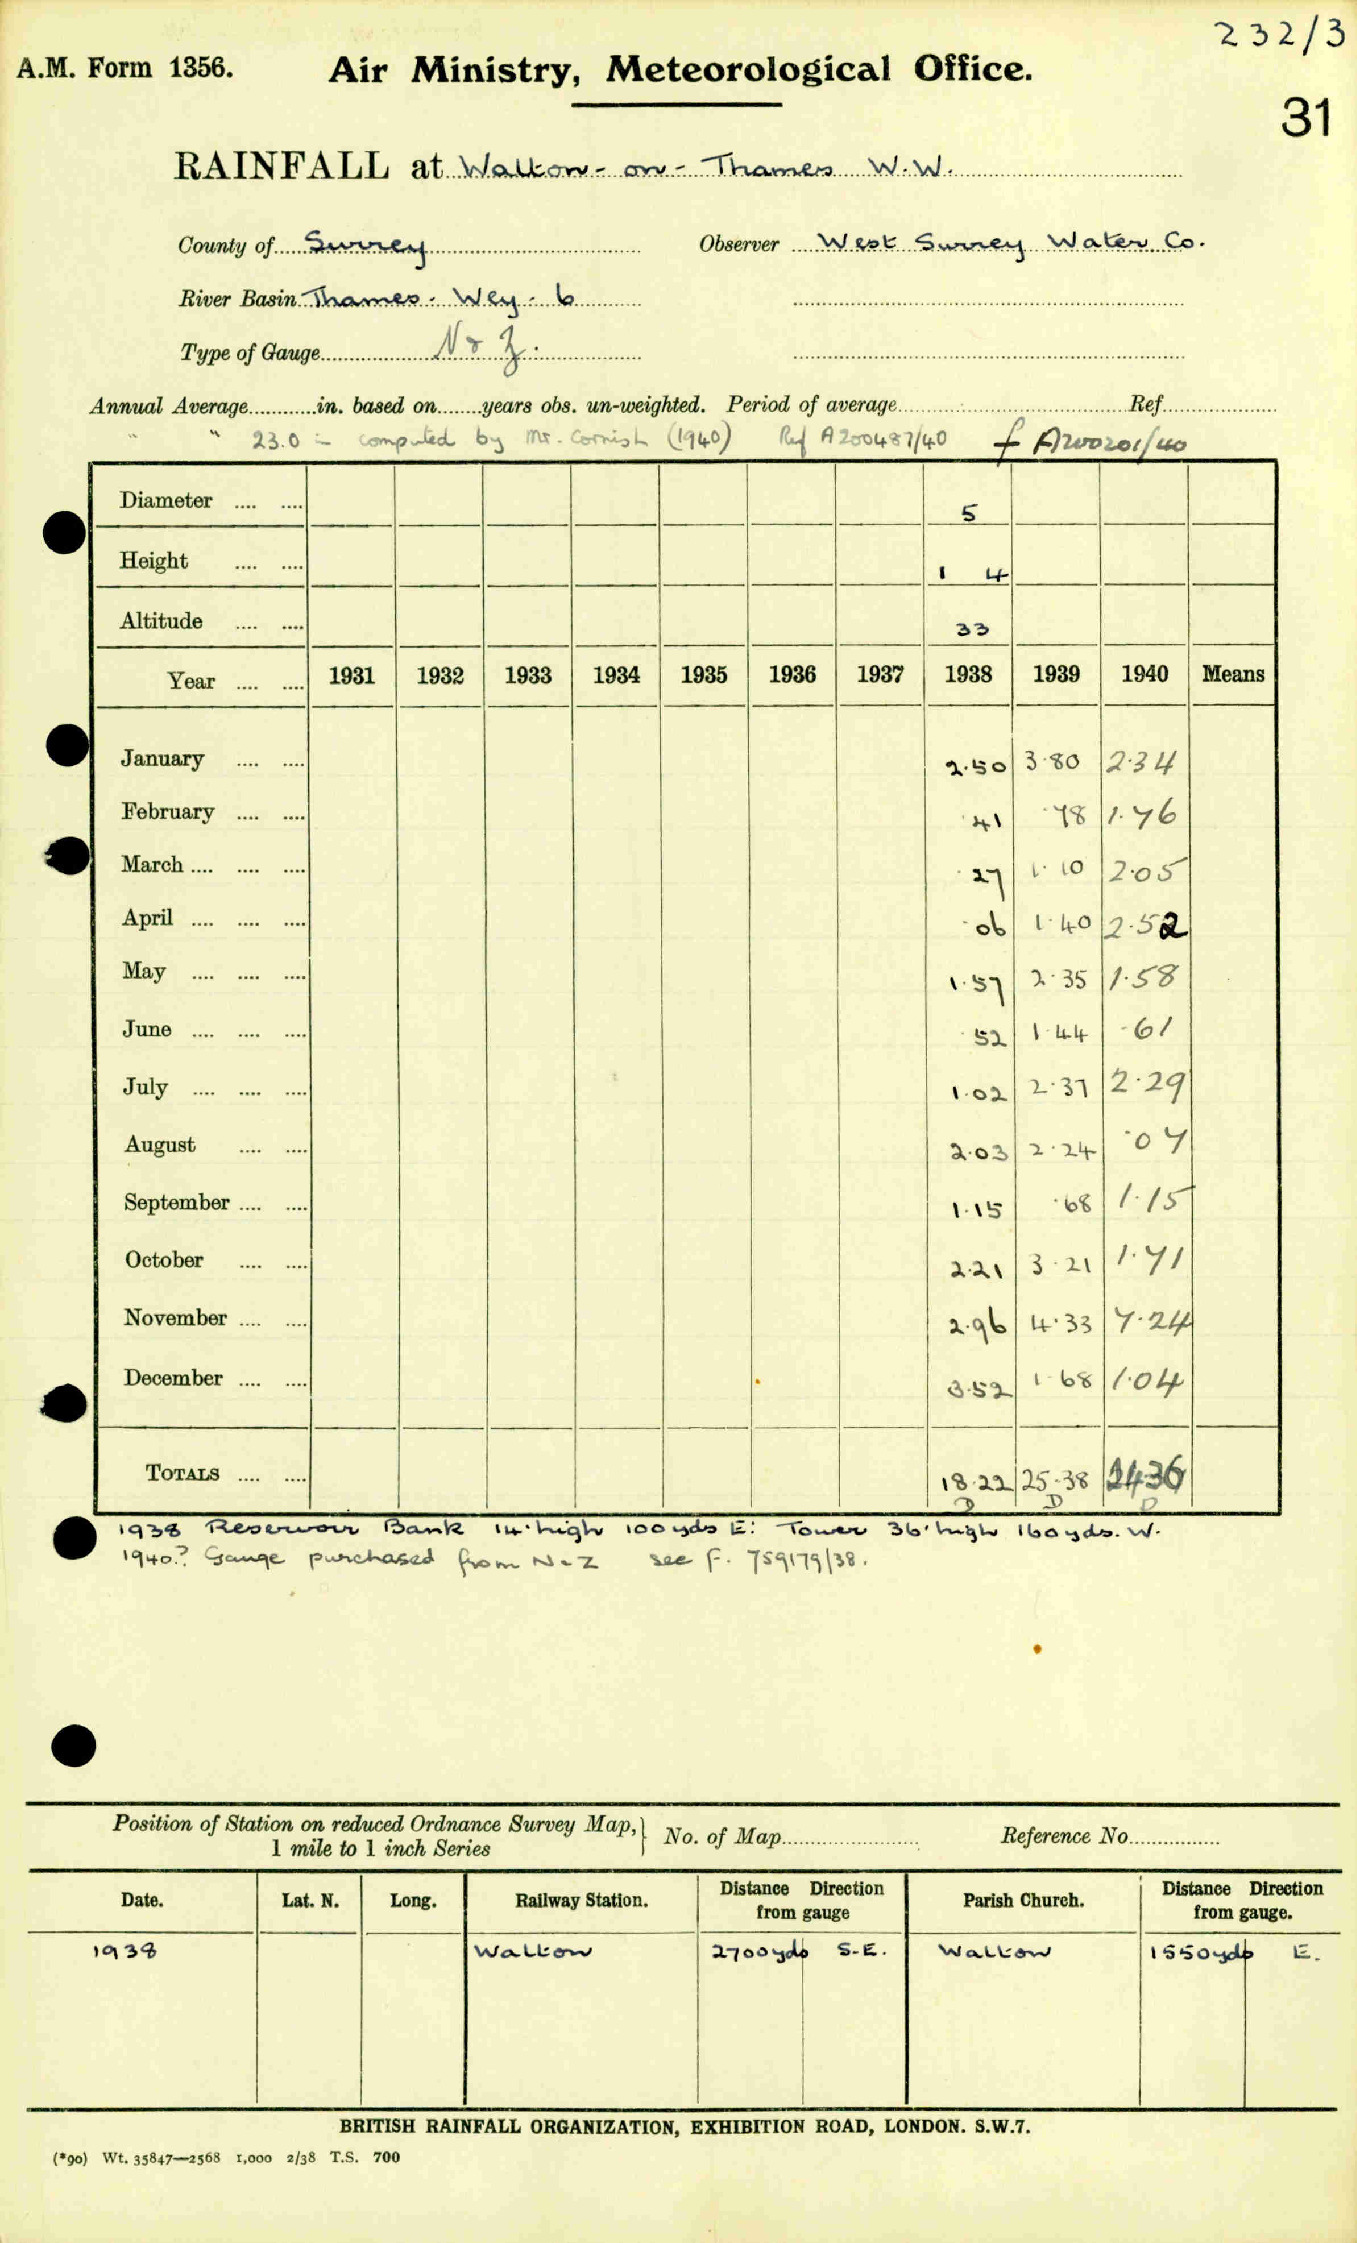 232/3
A.M. Form 1356. Air Ministry, Meteorological Office.
31
RAINFALL at Walton-on-Thames W.W.
County of Surrey Observer West Surrey Water Co.
River Basin Thames - Wey - 6
Type of Gauge N & Z.
Annual Average in. based on years obs. un-weighted. Period of average Ref.
" " 23.0 - computed by Mr. Cornish (1940) Ref A200487/40 f A200201/40
Diameter 5
Height 1 4
Altitude 33
Year 1931 1932 1933 1934 1935 1936 1937 1938 1939 1940 Means
January 2.50 3.80 2.34
February .41 .78 1.76
March .27 1.10 2.05
April .06 1.40 2.52
May 1.57 2.35 1.58
June .52 1.44 .61
July 1.02 2.37 2.29
August 2.03 2.24 .07
September 1.15 .68 1.15
October 2.21 3.21 1.71
November 2.96 4.33 7.24
December 3.52 1.68 1.04
TOTALS 18.22 25.38 24.36
D D D
1938 Reservoir Bank 14' high 100yds E: Tower 36' high 160yds. W.
1940? Gauge purchased from N-Z see F. 759179/38.
Position of Station on reduced Ordnance Survey Map, No. of Map Reference No.
1 mile to 1 inch Series
Date. Lat. N. Long. Railway Station. Distance Direction from gauge Parish Church. Distance Direction from gauge.
1938 Walton 2700yds S.E. Walton 1550yds E.
BRITISH RAINFALL ORGANIZATION, EXHIBITION ROAD, LONDON. S.W.7.
(*90) Wt. 35847—2568 1,000 2/38 T.S. 700